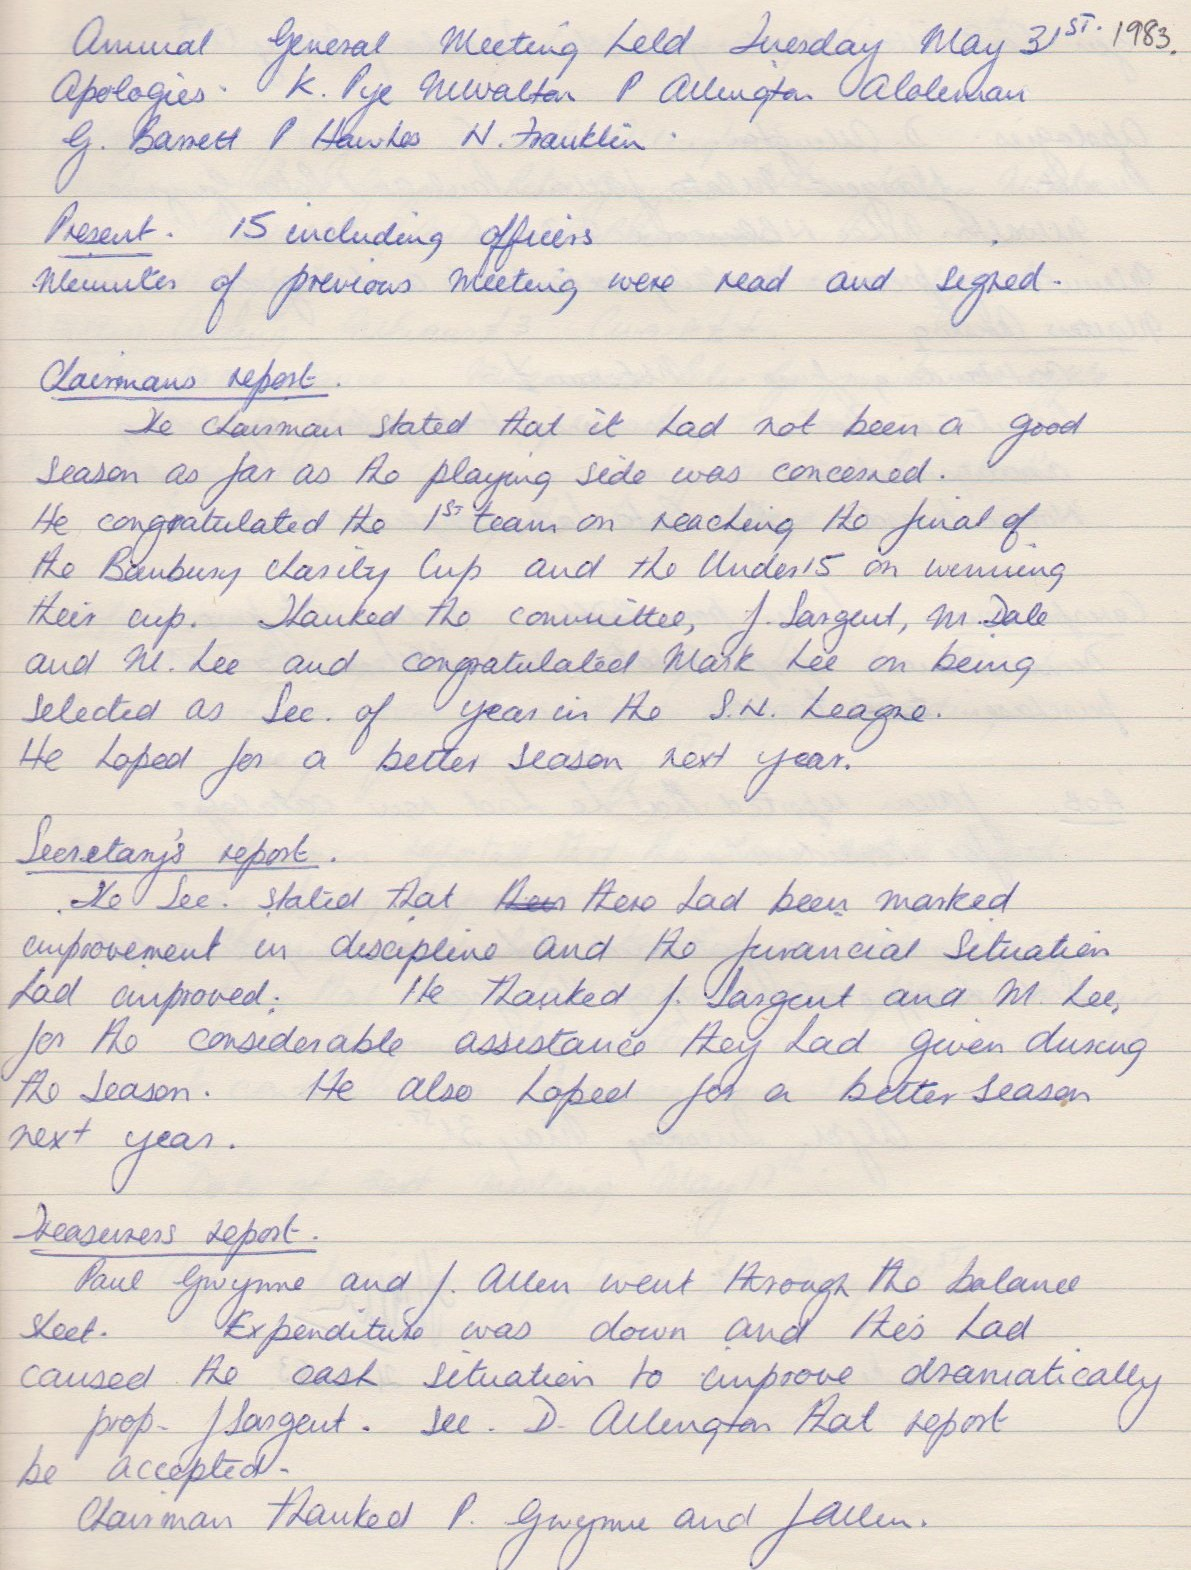 Annual General Meeting held Tuesday May 31ST. 1983.
Apologies. K. Pye M Walton P Arlington A Coleman
G. Barrett P Hawkes N. Franklin.
Present. 15 including officers
Minutes of previous meeting were read and signed.
Chairmans report.
The chairman stated that it had not been a good
season as far as the playing side was concerned.
He congratulated the 1ST team on reaching the final of
the Banbury Charity Cup and the Under 15 on winning
their cup. Thanked the committee, J. Sargent, M. Dale
and M. Lee and congratulated Mark Lee on being
selected as Sec. of year in the S.N. League.
He hoped for a better season next year.
Secretary's report.
The Sec. stated that there had been marked
improvement in discipline and the financial situation
had improved. He thanked J. Sargent and M. Lee,
for the considerable assistance they had given during
the season. He also hoped for a better season
next year.
Treasurers report.
Paul Gwynne and J. Allen went through the balance
sheet. Expenditure was down and this had
caused the cash situation to improve dramatically
prop. J Sargent. sec. D. Arlington that report
be accepted.
Chairman thanked P. Gwynne and J Allen.